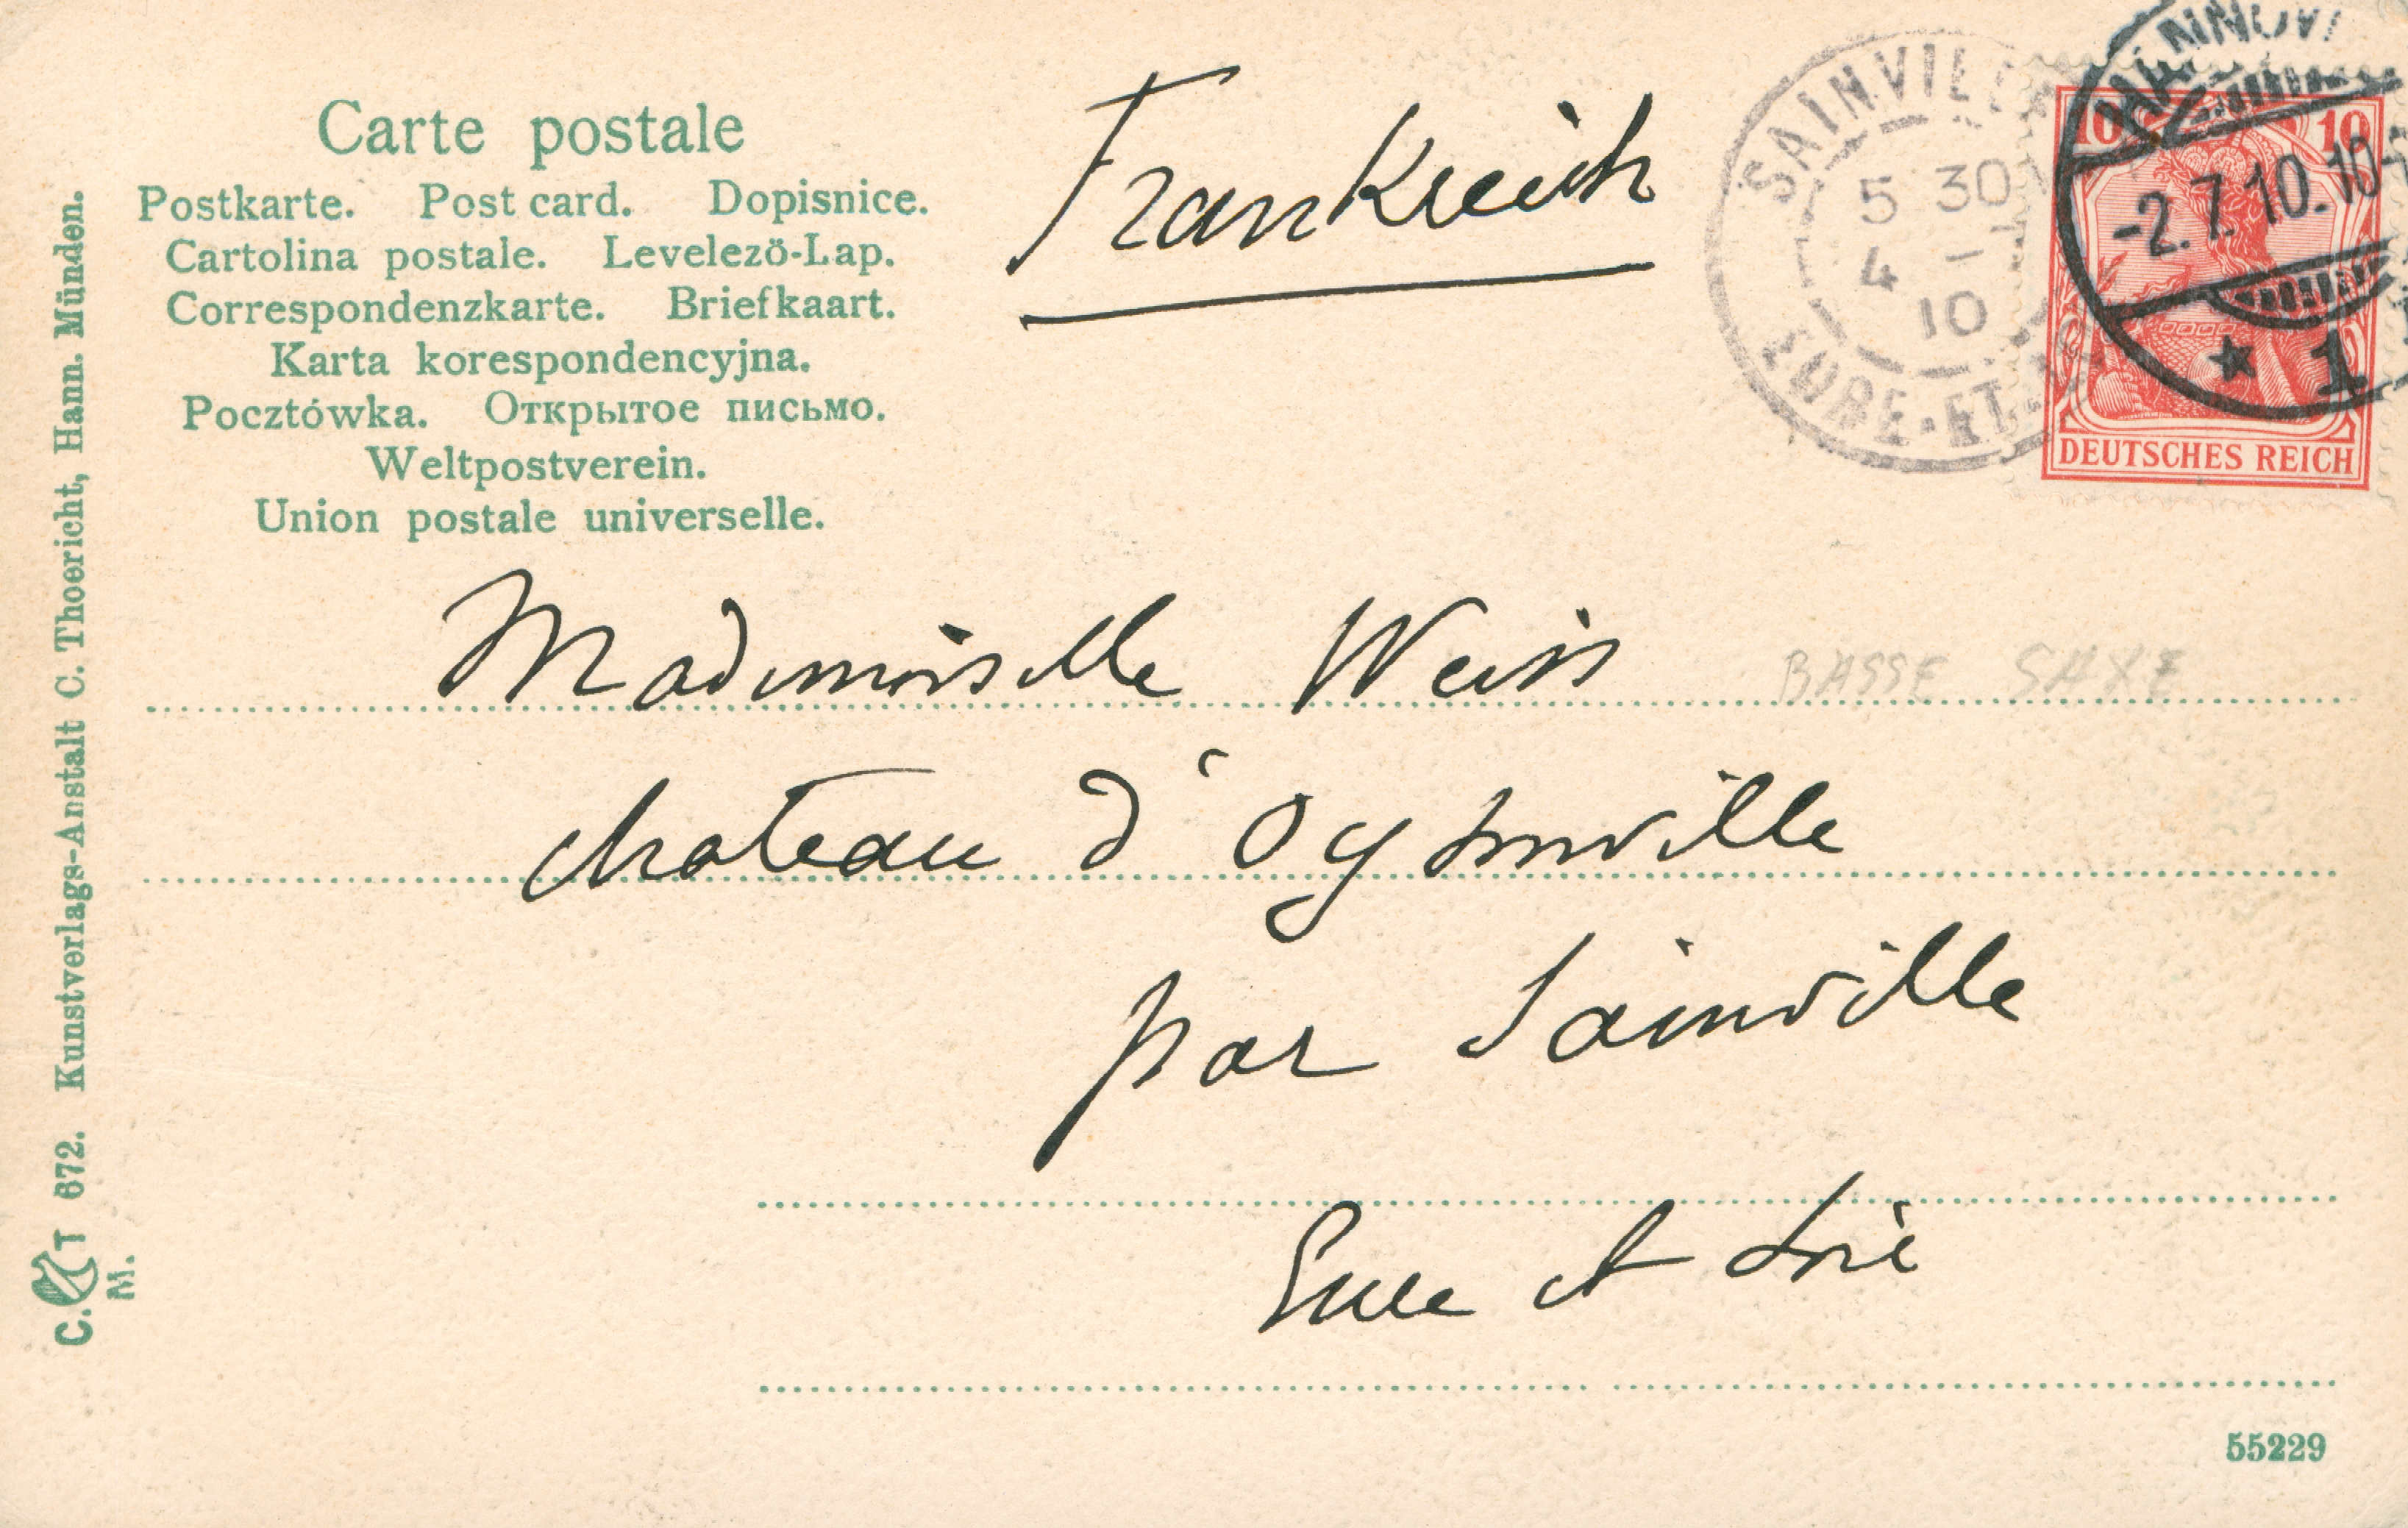 Carte postale
Postkarte. Post card. Dopisnice.
Cartolina postale. Levelezö-Lap.
Correspondenzkarte. Briefkaart.
Karta korespondencyjna.
Pocztówka. Открытое письмо.
Weltpostverein.
Union postale universelle.
Frankreich
SAINVILLE
5 30
4 -7
10
EURE-ET-
HANNOVER
-2.7.10.10-
* 1
10 10
DEUTSCHES REICH
Mademoiselle Weiss
BASSE SAXE
chateau d'Oysonville
par Sainville
Eure et Loir
55229
C. T 672. Kunstverlags-Anstalt C. Thoericht, Hann. Münden.
M.